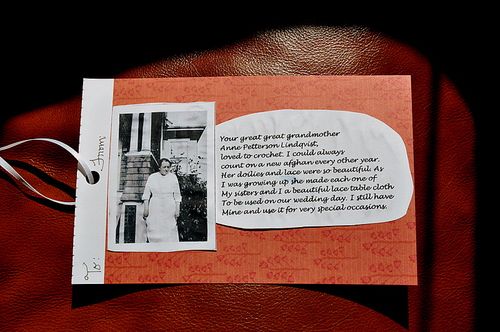 To: Emily
Your great great grandmother
Anne Petterson Lindqvist,
loved to crochet. I could always
count on a new afghan every other year.
Her doilies and lace were so beautiful. As
I was growing up she made each one of
My sisters and I a beautiful lace table cloth
To be used on our wedding day. I still have
Mine and use it for very special occasions.